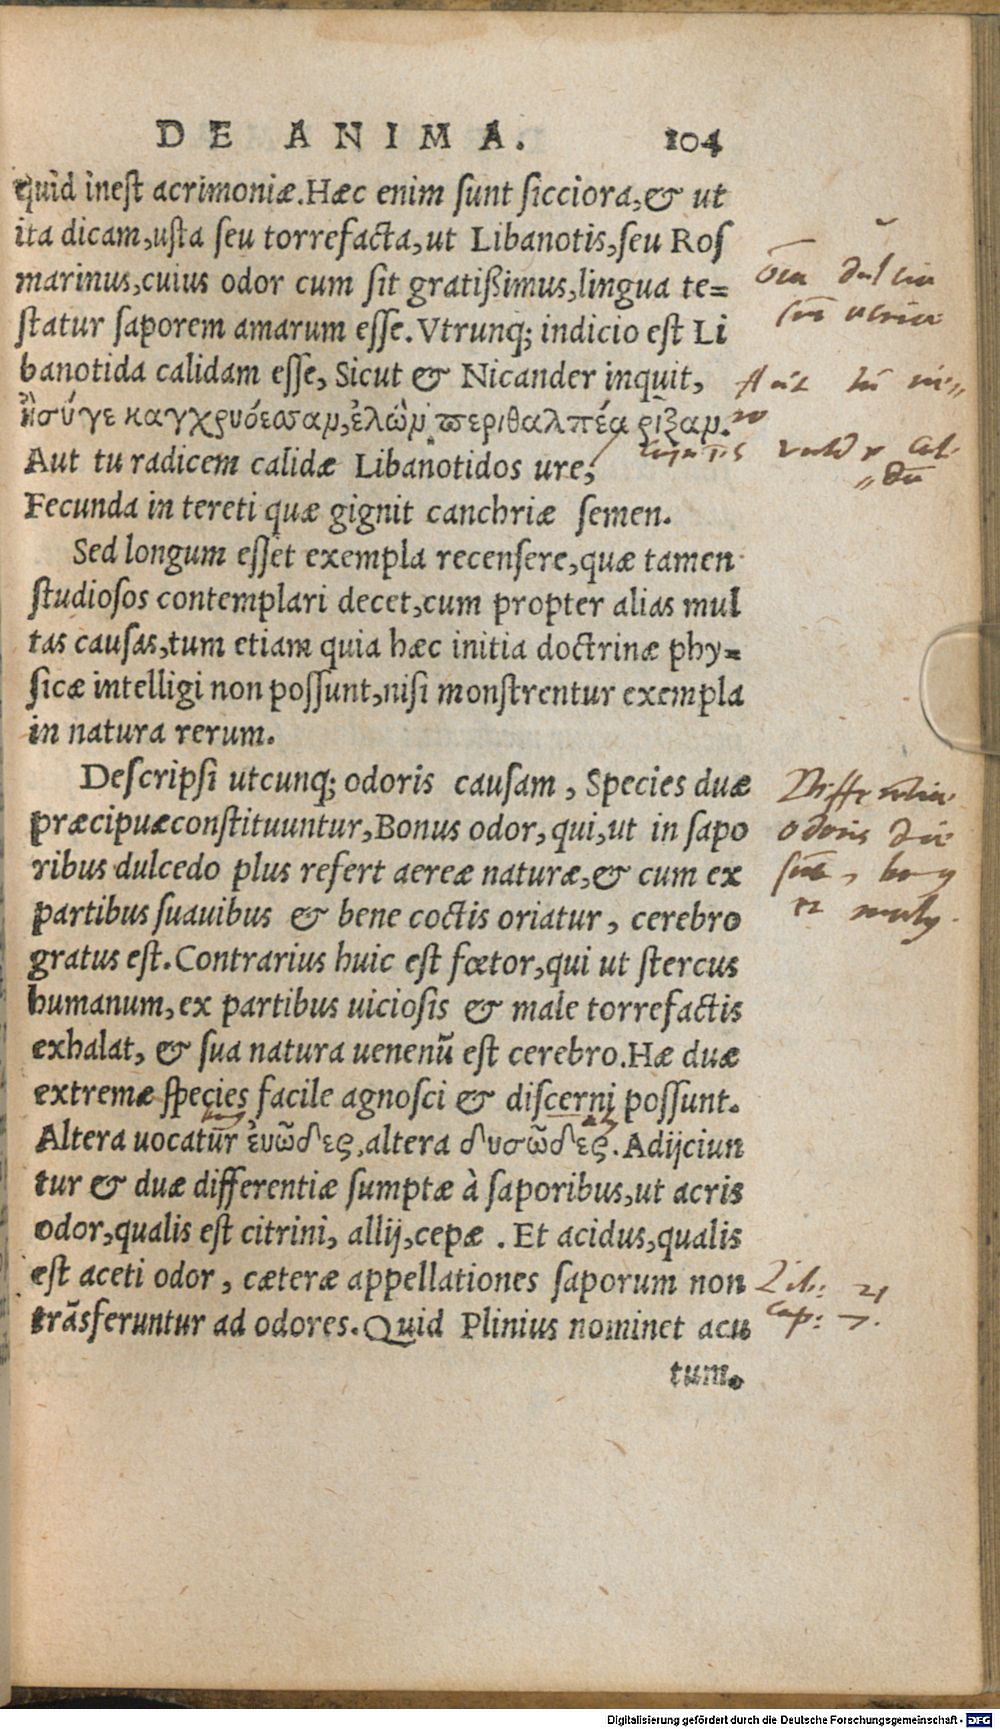 DE ANIMA. 104
quid inest acrimoniæ.Hæc enim sunt sicciora,& ut
ita dicam,usta seu torrefacta,ut Libanotis,seu Ros
marinus,cuius odor cum sit gratißimus,lingua te=
statur saporem amarum esse.Vtrunq; indicio est Li
banotida calidam esse, Sicut & Nicander inquit,
ἢ σύγε καγχρυόεσσαμ,ἑλὼμ περιθαλπέα ῥίζαμ.
Aut tu radicem calidæ Libanotidos ure,
Fecunda in tereti quæ gignit canchriæ semen.
Sed longum esset exempla recensere,quæ tamen
studiosos contemplari decet,cum propter alias mul
tas causas,tum etiam quia hæc initia doctrinæ phy=
sicæ intelligi non possunt,nisi monstrentur exempla
in natura rerum.
Descripsi utcunq; odoris causam, Species duæ
præcipuæ constituuntur,Bonus odor,qui,ut in sapo
ribus dulcedo plus refert aereæ naturæ,& cum ex
partibus suauibus & bene coctis oriatur, cerebro
gratus est.Contrarius huic est fœtor,qui ut stercus
humanum,ex partibus uiciosis & male torrefactis
exhalat, & sua natura uenenũ est cerebro.Hæ duæ
extremæ species facile agnosci & discerni possunt.
Altera uocatur ἐυῶδες,altera δυσῶδες.Adijciun
tur & duæ differentiæ sumptæ à saporibus,ut acris
odor,qualis est citrini, allij,cepæ. Et acidus,qualis
est aceti odor, cæteræ appellationes saporum non
trãsferuntur ad odores.Quid Plinius nominet acu
tum.
odoris
Lib: 21
cap: 7.
Digitalisierung gefördert durch die Deutsche Forschungsgemeinschaft - DFG